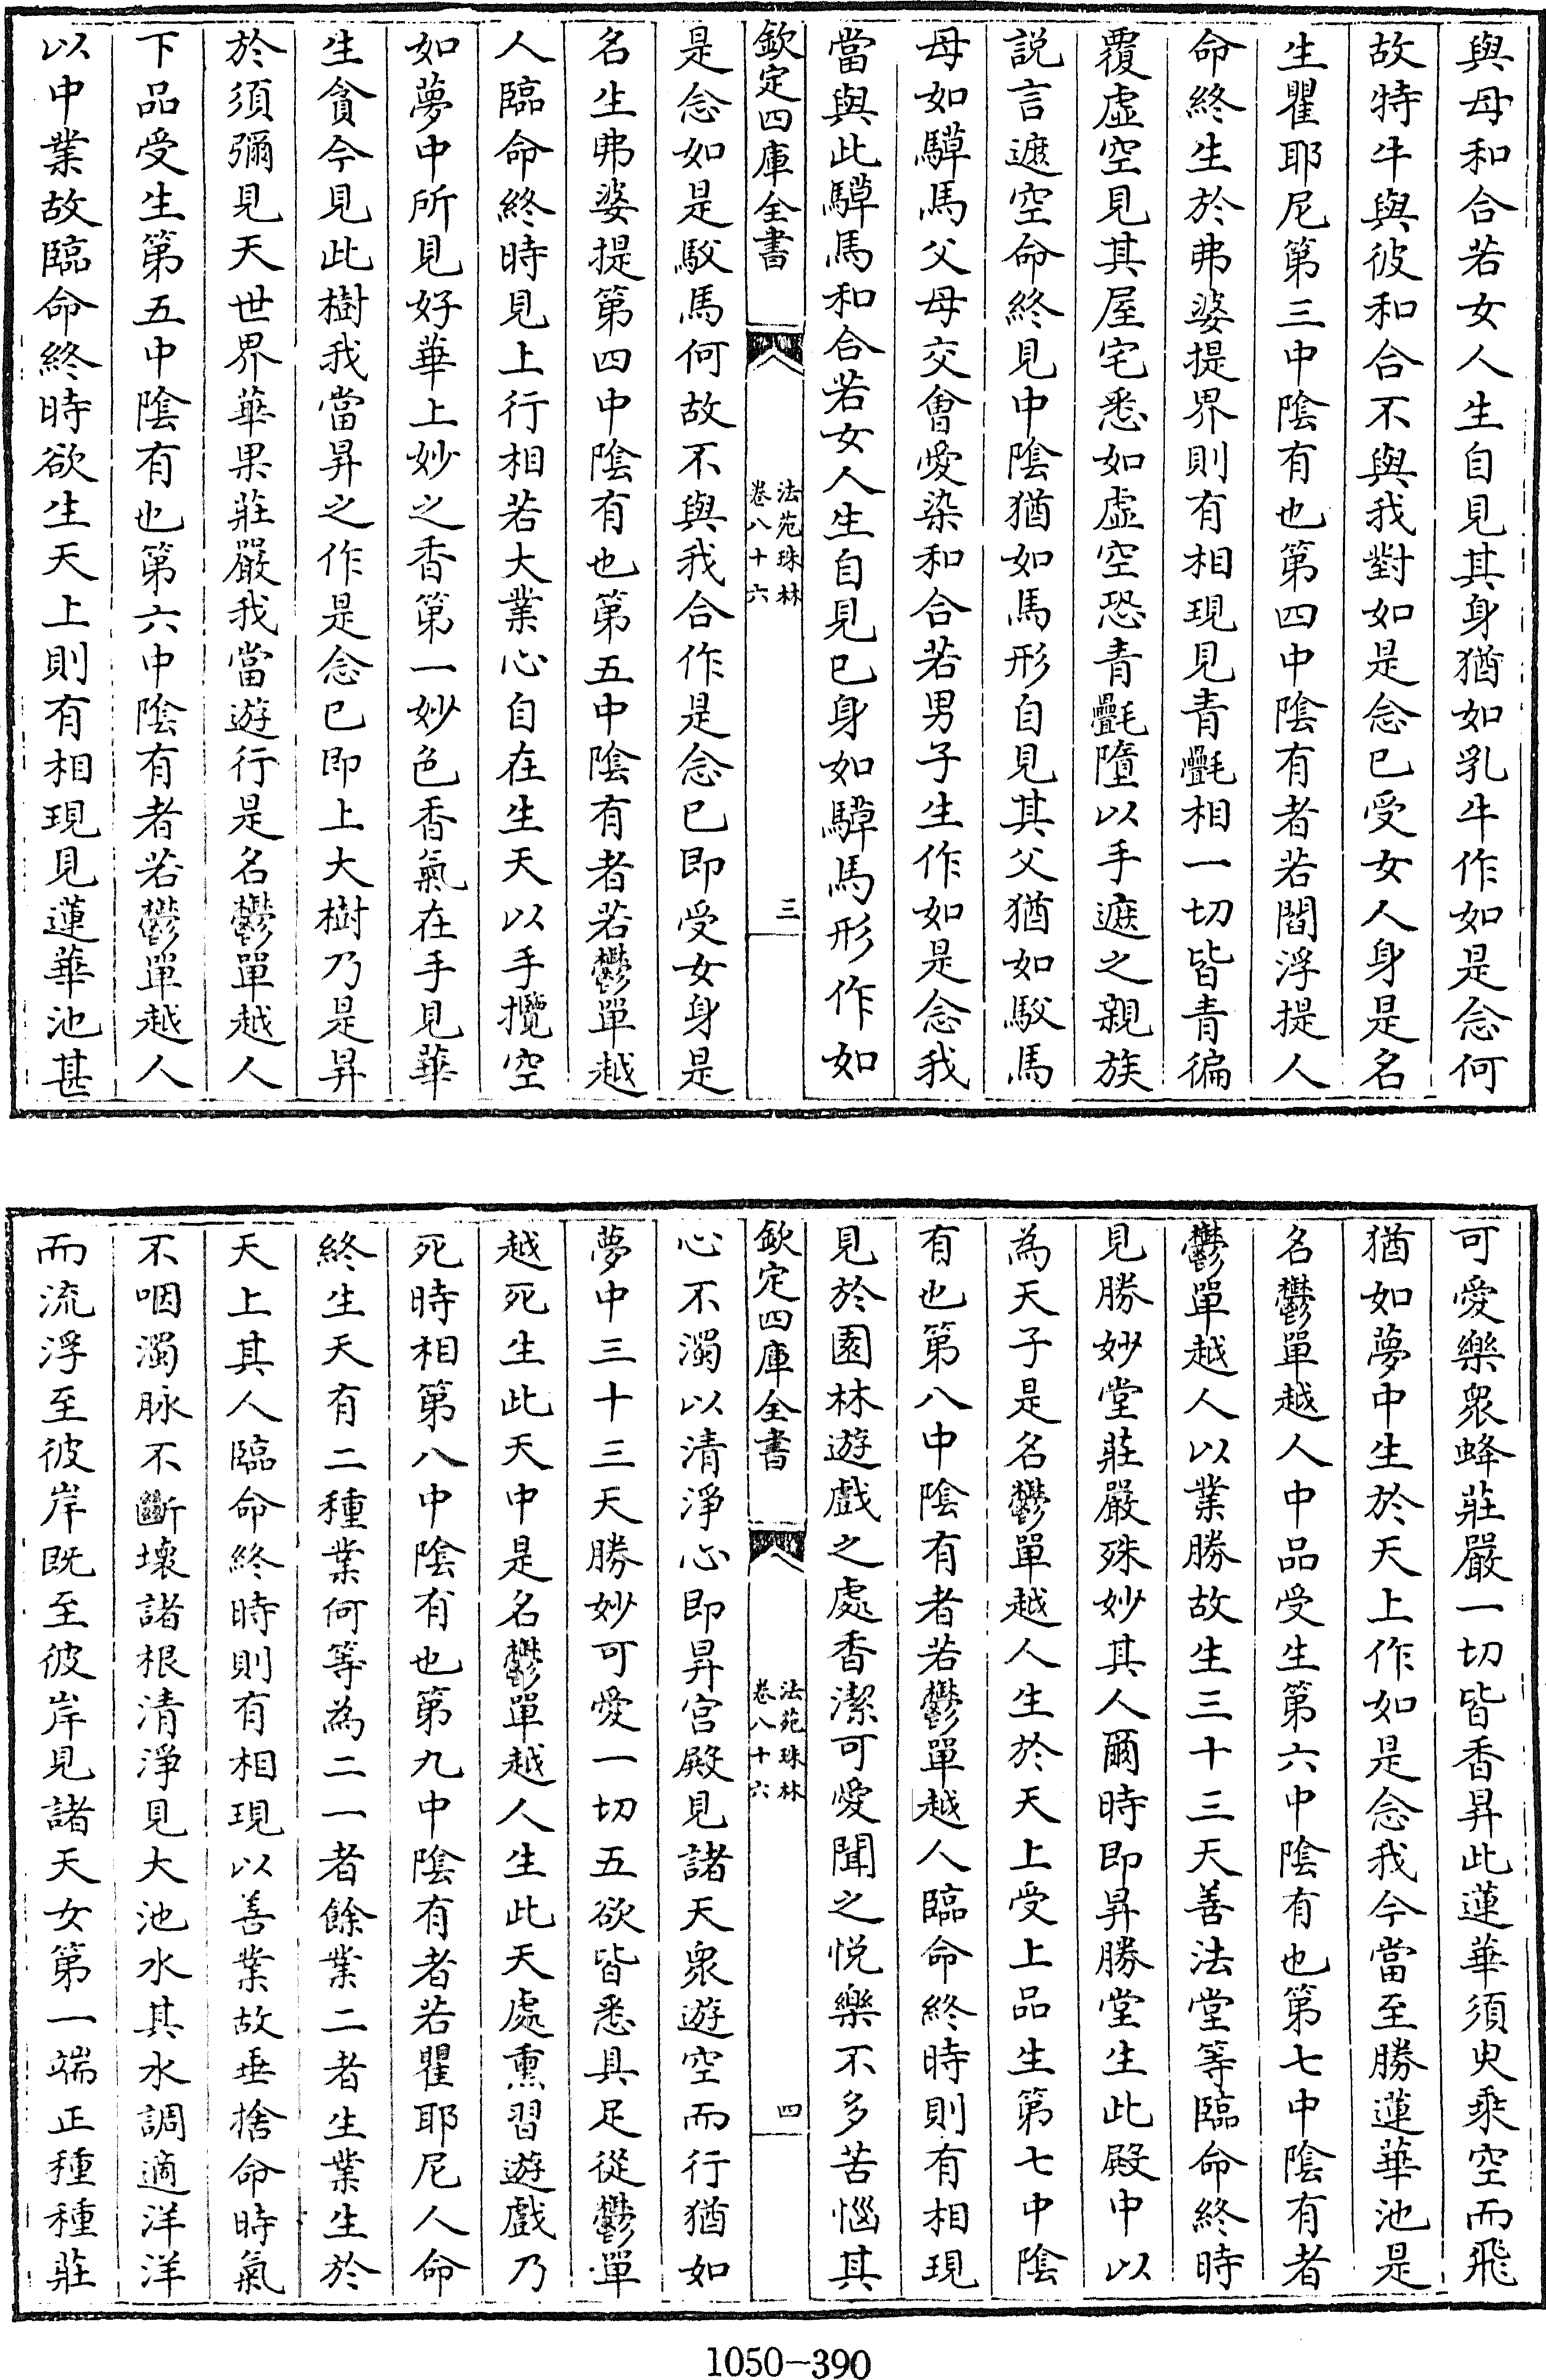 與母和合若女人生自見其身猶如乳牛作如是念何
故特牛與彼和合不與我對如是念已受女人身是名
生瞿耶尼第三中陰有也第四中陰有者若閻浮提人
命終生於弗婆提界則有相現見青㲲相一切皆青徧
覆虛空見其屋宅悉如虛空恐青㲲墮以手遮之親族
説言遮空命終見中陰猶如馬形自見其父猶如駁馬
母如騲馬父母交㑹愛染和合若男子生作如是念我
當與此騲馬和合若女人生自見已身如騲馬形作如
欽定四庫全書
法苑珠林
卷八十六
三
是念如是駁馬何故不與我合作是念已即受女身是
名生弗婆提第四中陰有也第五中陰有者若鬱單越
人臨命終時見上行相若大業心自在生天以手攬空
如夢中所見好華上妙之香第一妙色香氣在手見華
生貪今見此樹我當昇之作是念已即上大樹乃是昇
於須彌見天世界華果莊嚴我當遊行是名鬱單越人
下品受生第五中陰有也第六中陰有者若鬱單越人
以中業故臨命終時欲生天上則有相現見蓮華池甚
可愛樂衆蜂莊嚴一切皆香昇此蓮華須臾乘空而飛
猶如夢中生於天上作如是念我今當至勝蓮華池是
名鬱單越人中品受生第六中陰有也第七中陰有者
鬱單越人以業勝故生三十三天善法堂等臨命終時
見勝妙堂莊嚴殊妙其人爾時即昇勝堂生此殿中以
為天子是名鬱單越人生於天上受上品生第七中陰
有也第八中陰有者若鬱單越人臨命終時則有相現
見於園林遊戲之處香潔可愛聞之悦樂不多苦惱其
欽定四庫全書
法苑珠林
卷八十六
四
心不濁以清淨心即昇宫殿見諸天衆遊空而行猶如
夢中三十三天勝妙可愛一切五欲皆悉具足從鬱單
越死生此天中是名鬱單越人生此天處熏習遊戲乃
死時相第八中陰有也第九中陰有者若瞿耶尼人命
終生天有二種業何等為二一者餘業二者生業生於
天上其人臨命終時則有相現以善業故垂捨命時氣
不咽濁脉不斷壞諸根清淨見大池水其水調適洋洋
而流浮至彼岸既至彼岸見諸天女第一端正種種莊
1050-390